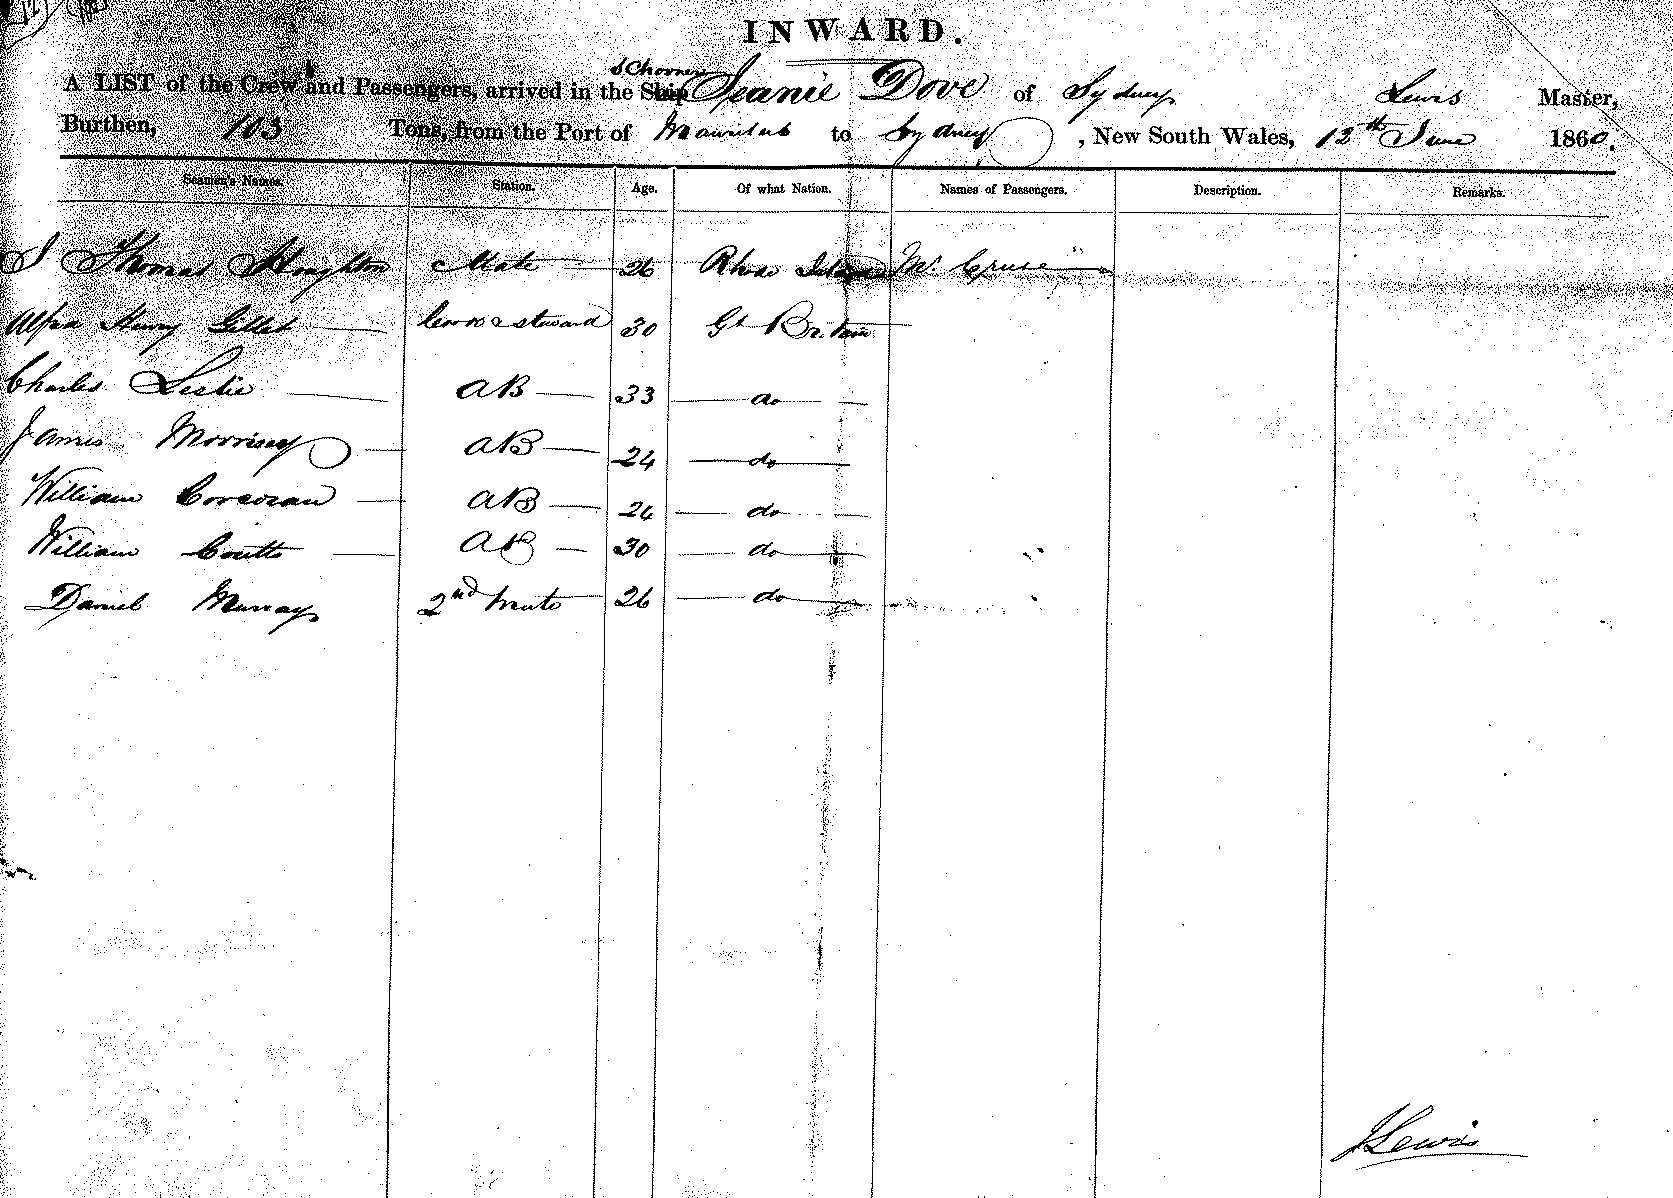 INWARD.
A LIST of the Crew and Passengers, arrived in the Ship Schooner Jeanie Dove of Sydney Lewis Master,
Burthen, 103 Tons, from the Port of Mauritius to Sydney, New South Wales, 13th June 1860.
Seamen's Names. Station. Age. Of what Nation. Names of Passengers. Description. Remarks.
Thomas Houghton Mate 26 Rhode Island Mr. Cruse
Henry Cook & steward 30 Gt Britain
Charles Leslie AB 33 do
James Morrisey AB 24 do
William Corcoran AB 24 do
William Coutts AB 30 do
Daniel Murray 2nd Mate 26 do
J Lewis